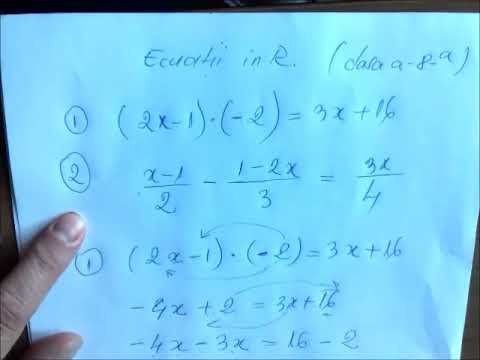 Ecuații in R. (clasa a-8-a)
① (2x-1)·(-2) = 3x+16
② x-1/2 - 1-2x/3 = 3x/4
① (2x-1)·(-2) = 3x+16
-4x + 2 = 3x+16
-4x - 3x = 16 - 2